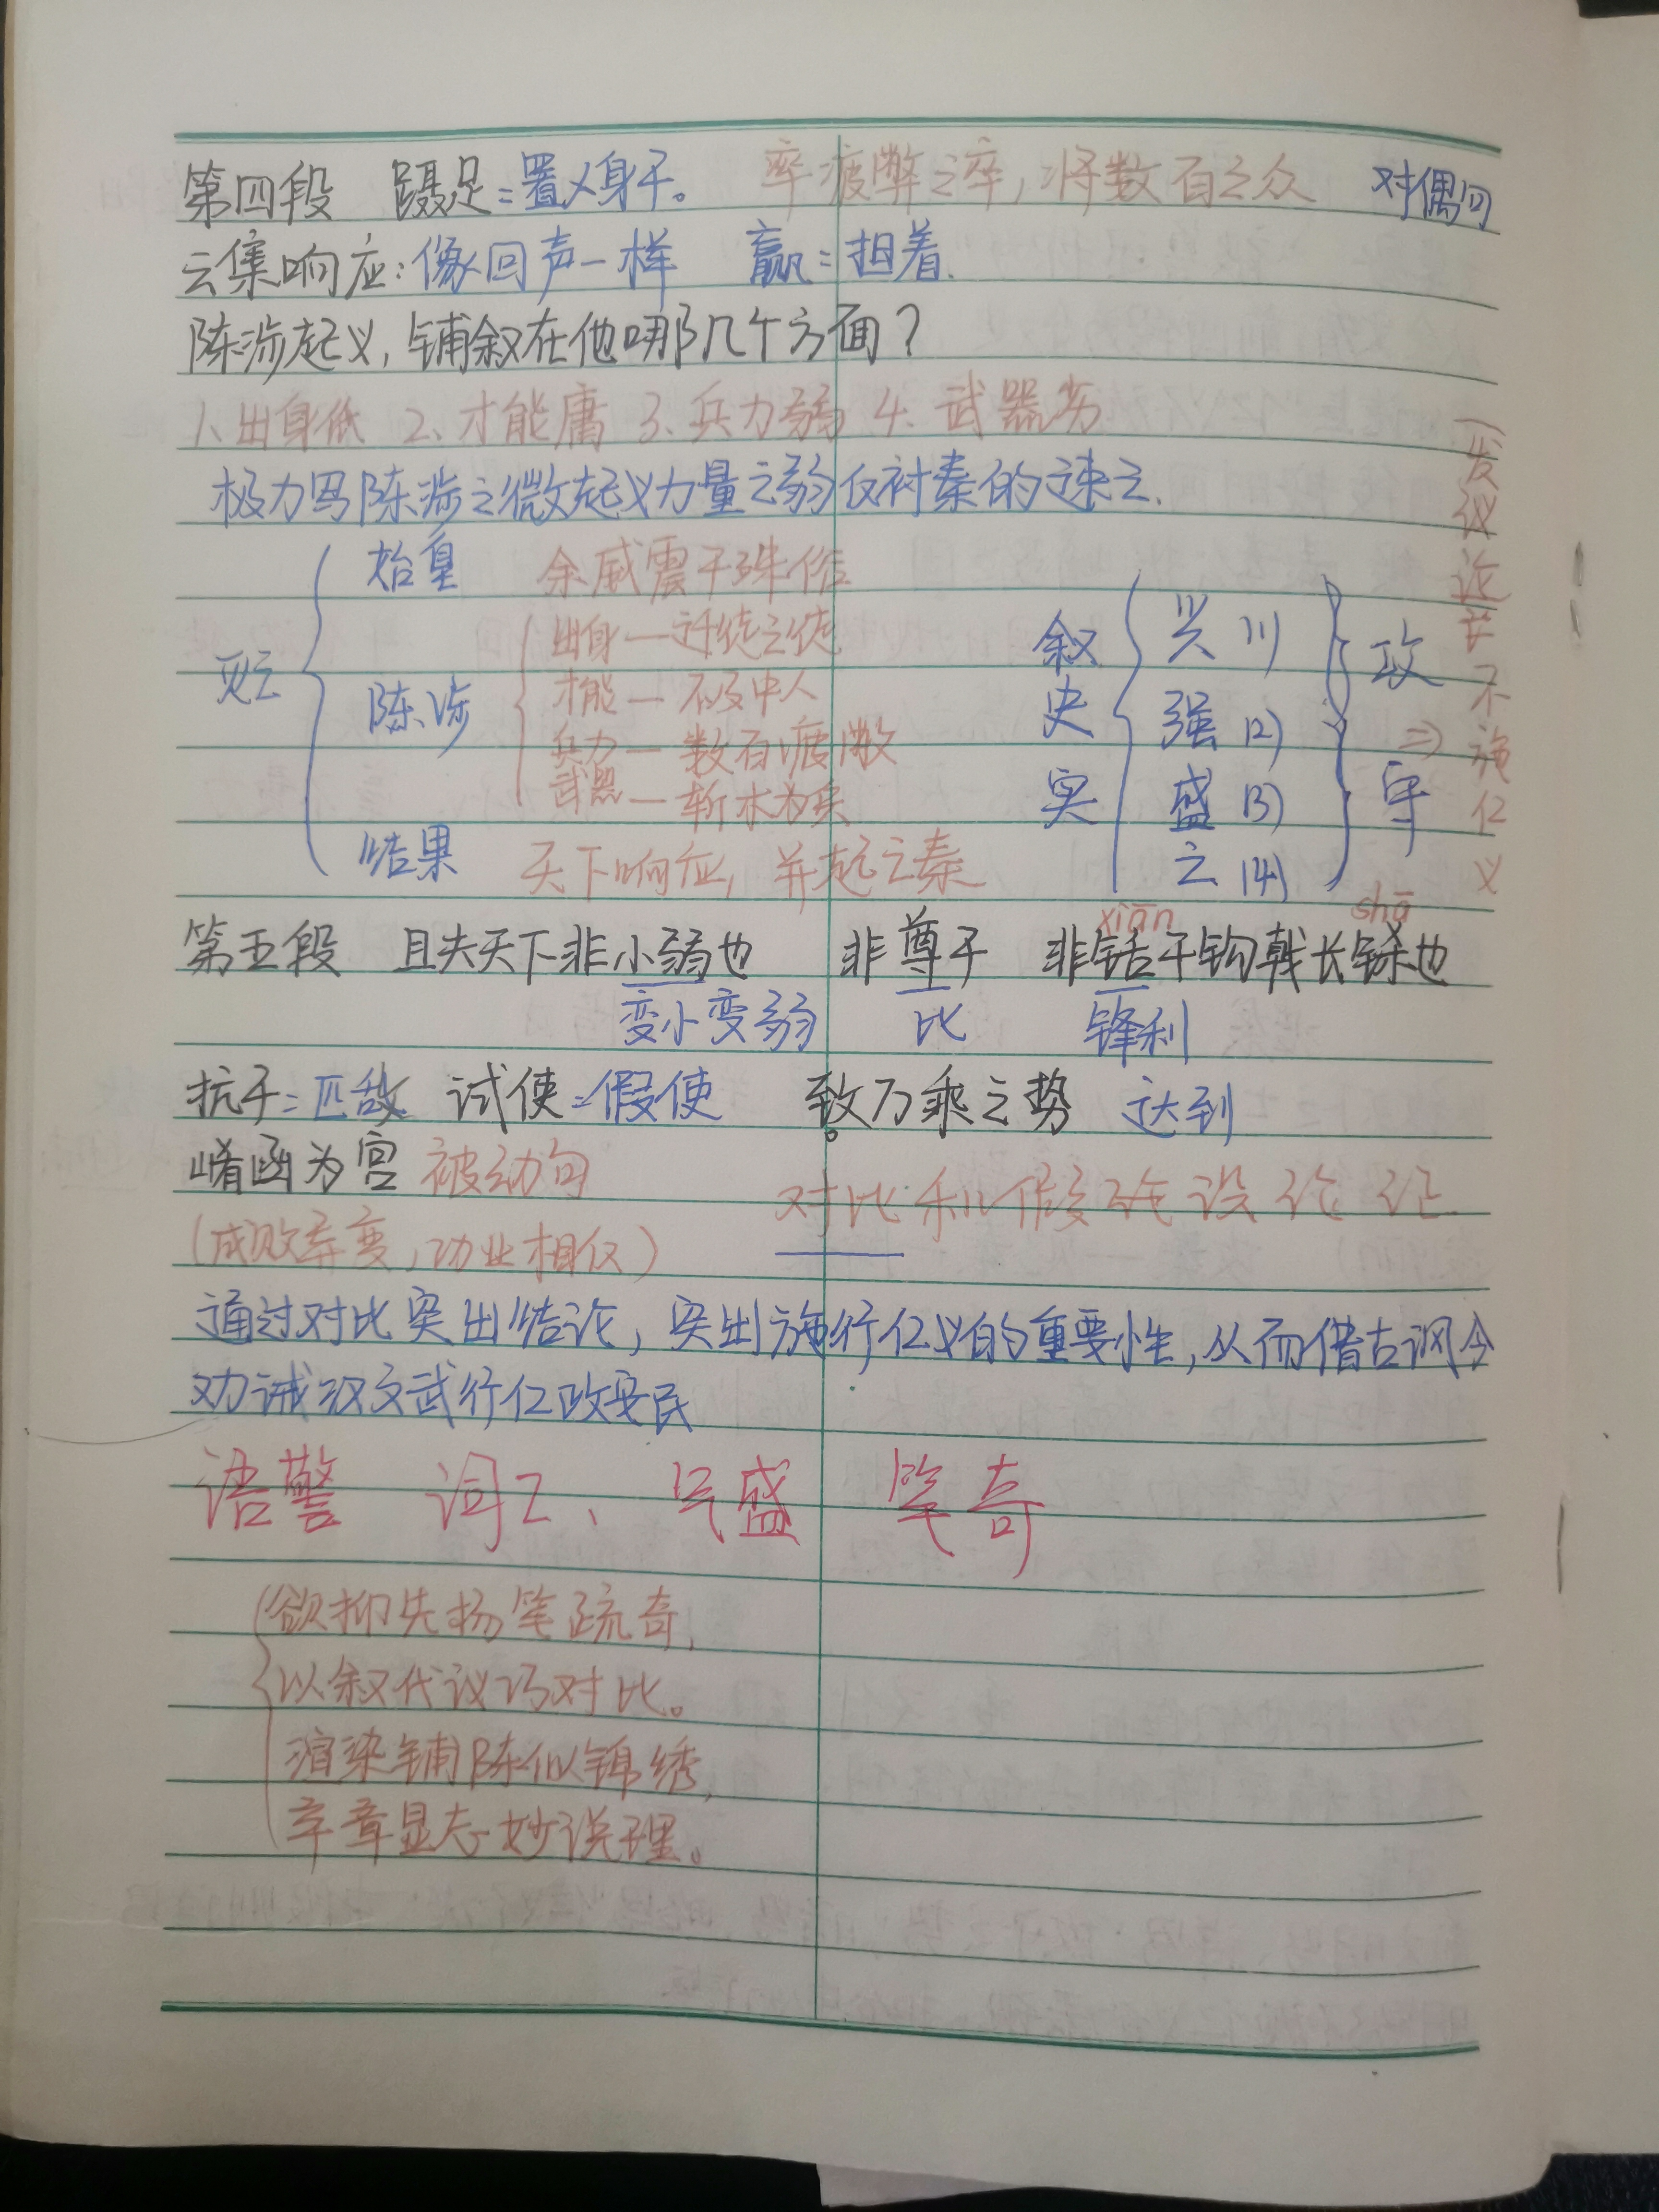 第四段 蹑足=置义身于。 率疲弊之卒,将数百之众 对偶句
云集响应:像回声一样 赢=担着.
陈涉起义,铺叙在他哪几个方面?
1、出身低 2、才能庸 3、兵力弱 4、武器劣
极力写陈涉之微起义力量之弱反衬秦的速亡.
始皇 余威震于殊俗
出身一迁徙之徒
陈涉 才能一不及中人
兵力一数百疲散
武器一斩木为兵
结果 天下响应,并起亡秦
叙史实
兴(1)
强(2)
盛(3)
亡(4)
攻守
⇒
(发议论)不施仁义
第五段 且夫天下非小弱也 非尊于 非铦于钩戟长铩也
xiān shā
变小变弱 比 锋利
抗于=匹敌 试使=假使 致万乘之势 达到
崤函为宫 被动句
对比和假设论证.
(成败异变,功业相反)
通过对比突出结论,突出施行仁义的重要性,从而借古讽今
劝诫汉文武行仁政安民
语警 词工、气盛 笔奇
欲抑先扬笔疏奇,
以叙代议巧对比。
渲染铺陈似锦绣,
卒章显志妙说理。